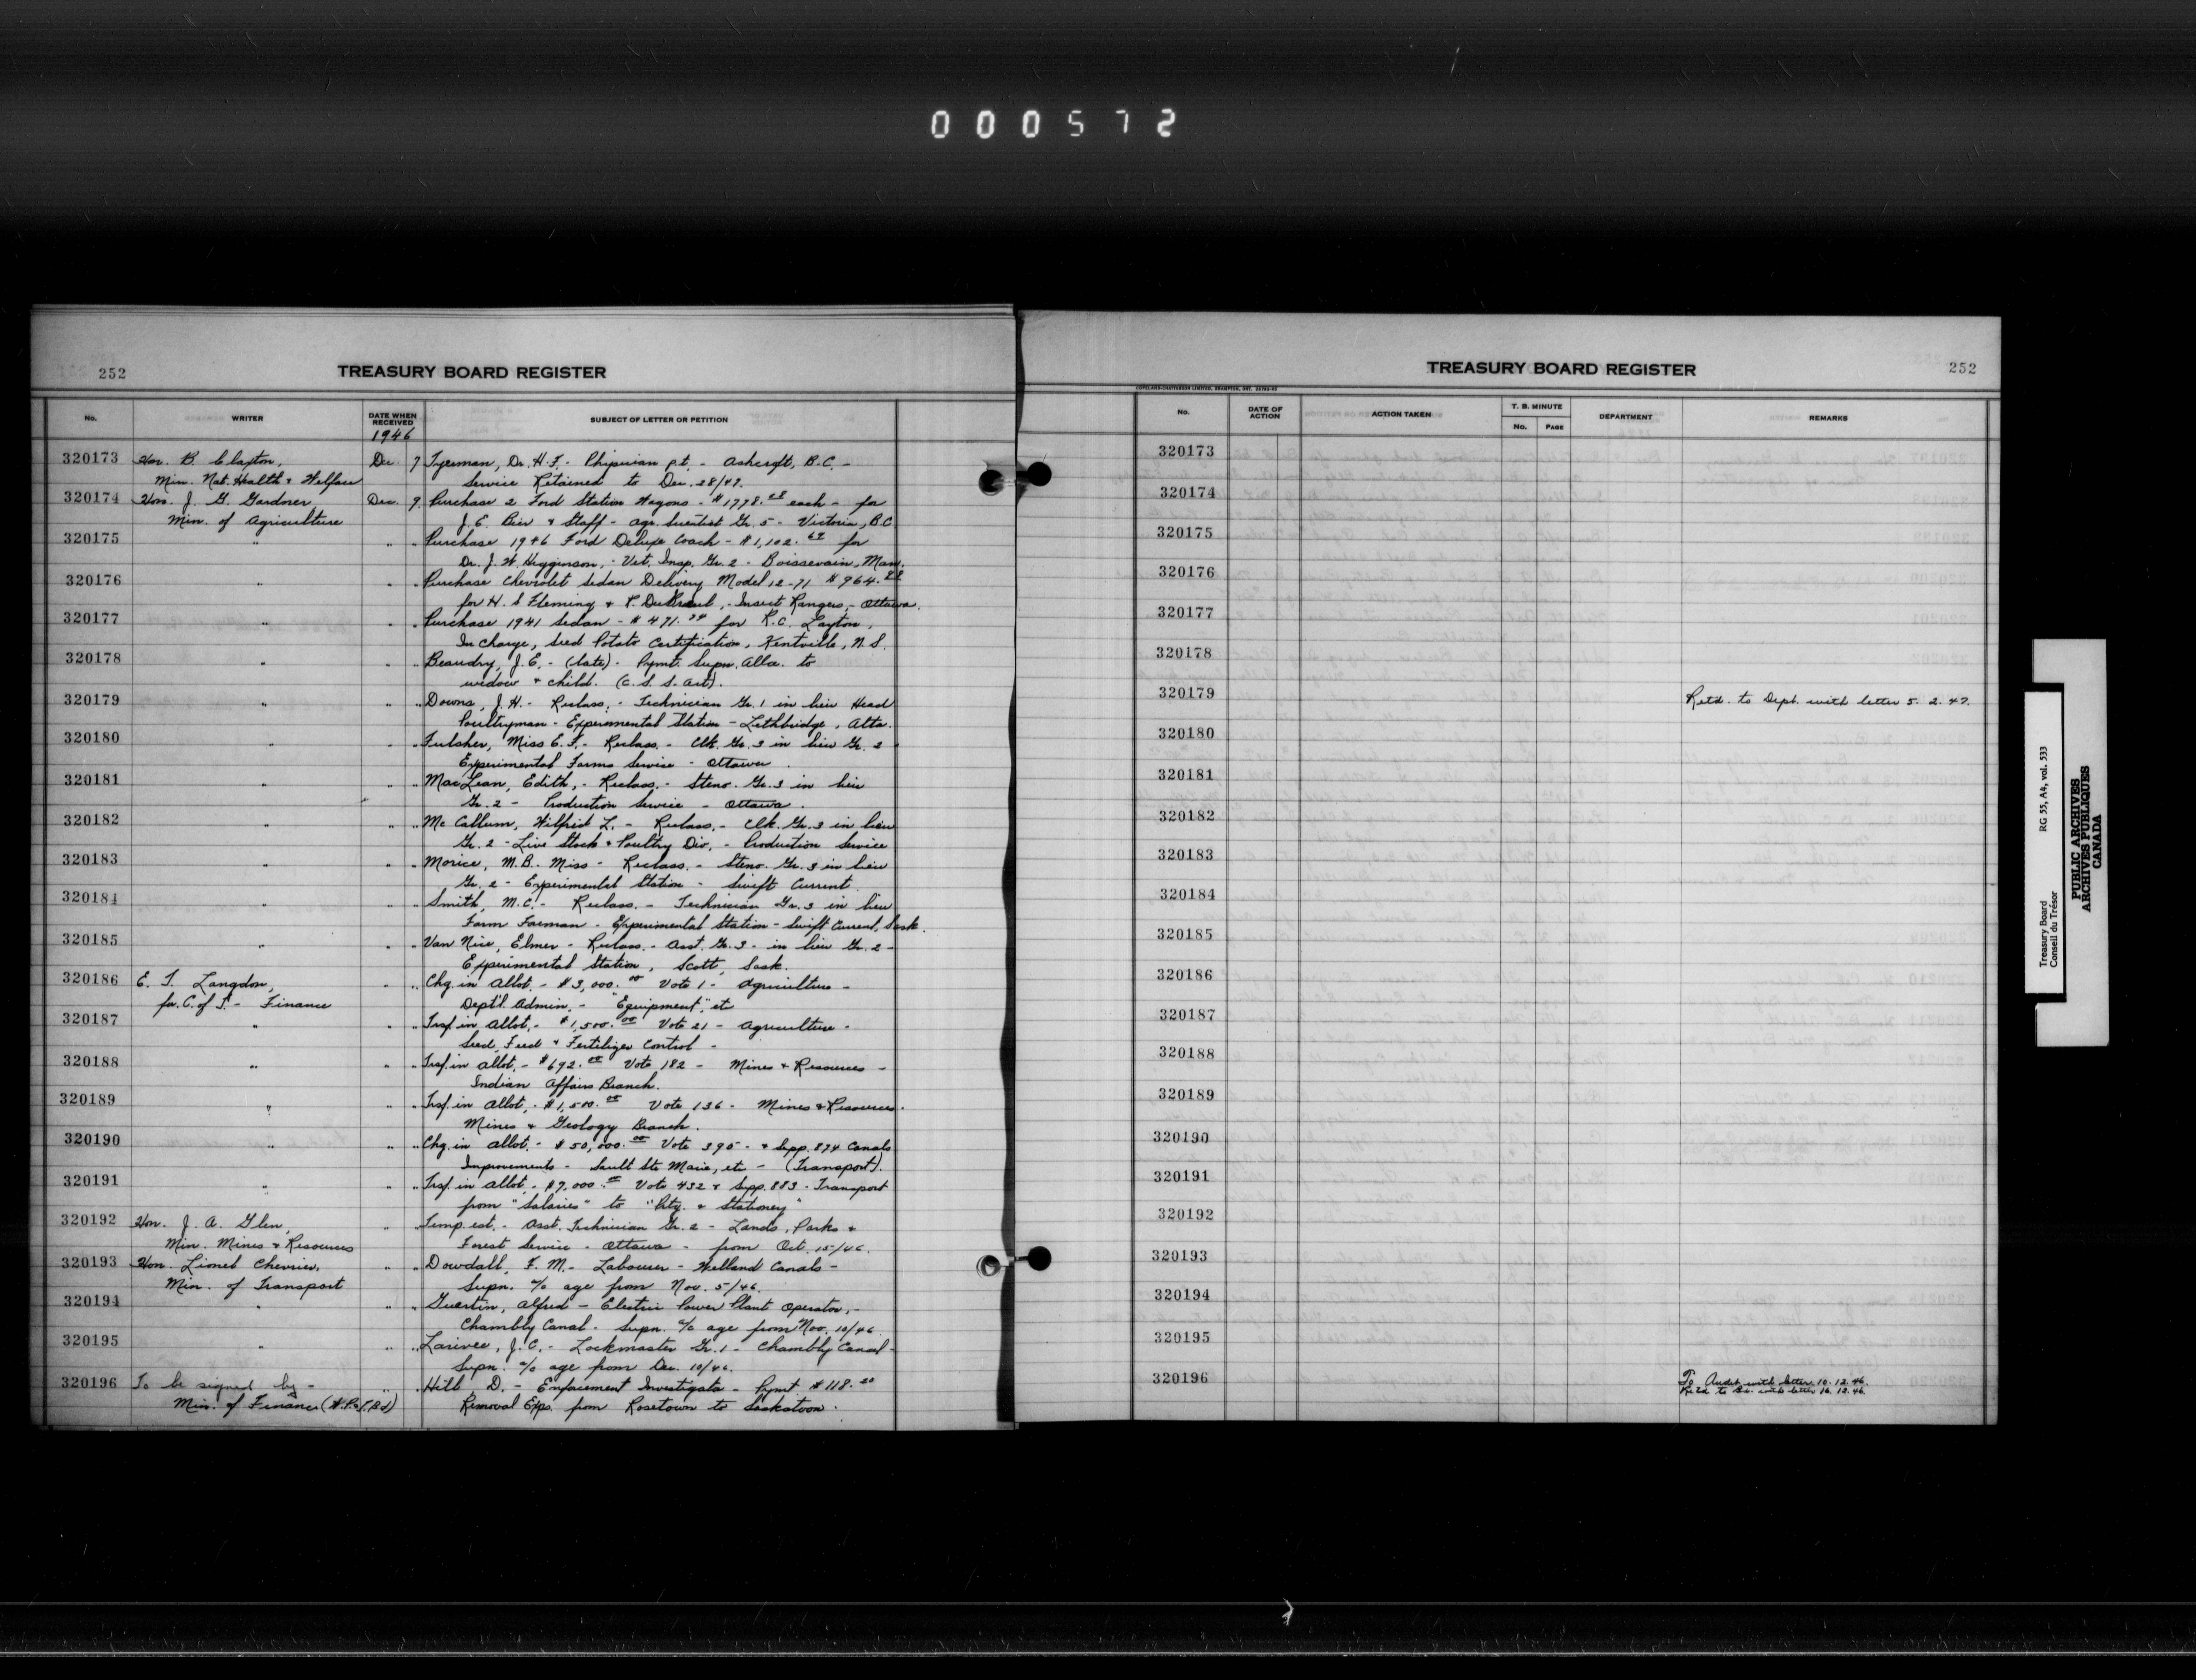 000572
252
TREASURY BOARD REGISTER
No. WRITER DATE WHEN RECEIVED SUBJECT OF LETTER OR PETITION
1946
320173 Hon. B. Claxton, Dec. 7 Tyerman, Dr. H.F. - Physician p.t. - Ashcroft, B.C. -
Min. Nat. Health & Welfare Service Retained to Dec. 28/47.
320174 Hon. J. G. Gardner Dec. 9. Purchase 2 Ford Station Wagons - $1778.28 each - for
Min. of Agriculture J. E. Bier & Staff - Agr. Scientist Gr. 5 - Victoria, B.C.
320175 " " " Purchase 1946 Ford Deluxe Coach - $1,102.62 for
Dr. J. W. Higginson, - Vet. Insp. Gr. 2 - Boissevain, Man.
320176 " " " Purchase Chevrolet Sedan Delivery Model 12-71 $964.28
for H. S Fleming & P. , - Insect Rangers, - Ottawa.
320177 " " " Purchase 1941 Sedan - $471.74 for R.C. Layton,
In Charge, Seed Potato Certification, Kentville, N.S.
320178 " " " Beaudry, J.E. - (late) - Pymt. Supn. Allce. to
widow & child. (C.S.S. Act).
320179 " " " Downs, J.H. - Reclass. - Technician Gr. 1 in lieu Head
Poultryman - Experimental Station - Lethbridge, Alta.
320180 " " " Fulsher, Miss E.F. - Reclass. - Clk. Gr. 3 in lieu Gr. 2
Experimental Farms Service - Ottawa.
320181 " " " MacLean, Edith, - Reclass. - Steno. Gr. 3 in lieu
Gr. 2 - Production Service - Ottawa.
320182 " " " McCallum, Wilfrid L. - Reclass. - Clk. Gr. 3 in lieu
Gr. 2 - Live Stock & Poultry Div. - Production Service
320183 " " " Morice, M.B. Miss - Reclass. - Steno. Gr. 3 in lieu
Gr. 2 - Experimental Station - Swift Current.
320184 " " " Smith, M.C. - Reclass. - Technician Gr. 3 in lieu
Farm Foreman - Experimental Station - Swift Current, Sask.
320185 " " " Van Nice, Elmer - Reclass. - Asst. Gr. 3 - in lieu Gr. 2 -
Experimental Station, Scott, Sask.
320186 E. T. Langdon, " " Chg. in Allot. - $3,000.00 Vote 1 - Agriculture -
for C. of T. - Finance Dept'l Admin. - "Equipment", etc
320187 " " " Trsf. in Allot. - $1,500.00 Vote 21 - Agriculture -
Seed, Feed & Fertilizer Control -
320188 " " " Trsf. in Allot. - $692.00 Vote 182 - Mines & Resources -
Indian Affairs Branch.
320189 " " " Trsf. in Allot. - $1,500.00 Vote 136 - Mines & Resources -
Mines & Geology Branch.
320190 " " " Chg. in Allot. - $50,000.00 Vote 395 - & Supp. 874 Canals
Improvements - Sault Ste Marie, etc - (Transport).
320191 " " " Trsf. in Allot. - $7,000.00 Vote 432 & Supp. 883 - Transport
from "Salaries" to "Ptg. & Stationery"
320192 Hon. J. A. Glen, " " Temp. est. - Asst. Technician Gr. 2 - Lands, Parks &
Min. Mines & Resources Forest Service - Ottawa - from Oct. 15/46.
320193 Hon. Lionel Chevrier, " " Dowdall, F. M. - Labourer - Welland Canals -
Min. of Transport Supn. a/c age from Nov. 5/46.
320194 " " " Guertin, Alfred - Electric Power Plant Operator, -
Chambly Canal - Supn. a/c age from Nov. 10/46.
320195 " " " Larivee, J.C. - Lockmaster Gr. 1 - Chambly Canal -
Supn. a/c age from Dec. 10/46.
320196 To be signed by - " " Hill, D. - Enforcement Investigator - Pymt. $118.20
Min. of Finance (W.P.&T.Bd) Removal Exps. from Rosetown to Saskatoon.
TREASURY BOARD REGISTER
252
COPELAND-CHATTERSON LIMITED, BRAMPTON, ONT.
No. DATE OF ACTION ACTION TAKEN T. B. MINUTE No. PAGE DEPARTMENT REMARKS
320173
320174
320175
320176
320177
320178
320179 Retd. to Dept. with letter 5.2.47.
320180
320181
320182
320183
320184
320185
320186
320187
320188
320189
320190
320191
320192
320193
320194
320195
320196 To Audit with letter 10.12.46.
Ret'd to with letter 16.12.46.
Treasury Board
Conseil du Trésor
RG 55, A4, vol. 533
PUBLIC ARCHIVES
ARCHIVES PUBLIQUES
CANADA